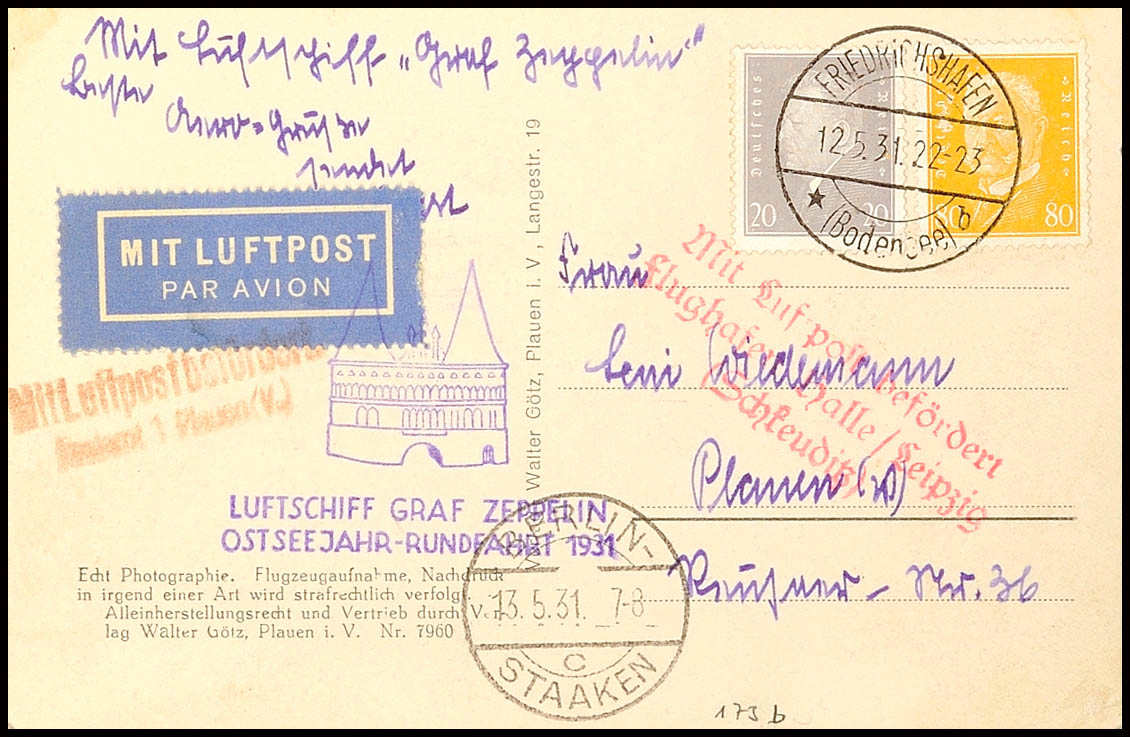 Mit Luftschiff „Graf Zeppelin"
beste
Aero-Grüße
sendet
MIT LUFTPOST
PAR AVION
Mit Luftpost befördert
1 Plauen (V.)
LUFTSCHIFF GRAF ZEPPELIN,
OSTSEEJAHR-RUNDFAHRT 1931
Echt Photographie. Flugzeugaufnahme, Nachdruck
in irgend einer Art wird strafrechtlich verfolgt
Alleinherstellungsrecht und Vertrieb durch Ver-
lag Walter Götz, Plauen i. V. Nr. 7960
Walter Götz, Plauen i. V., Langestr. 19
Deutsches Reich
20 20
Deutsches Reich
80 80
FRIEDRICHSHAFEN
12.5.31.22-23
(Bodensee) b
Mit Luftpost befördert
Flughafen Halle/Leipzig
(Schkeuditz)
Frau
Leni Wiedemann
Plauen (V)
Reusaer-Str. 36
BERLIN-
13.5.31. 7-8
C
STAAKEN
173 b